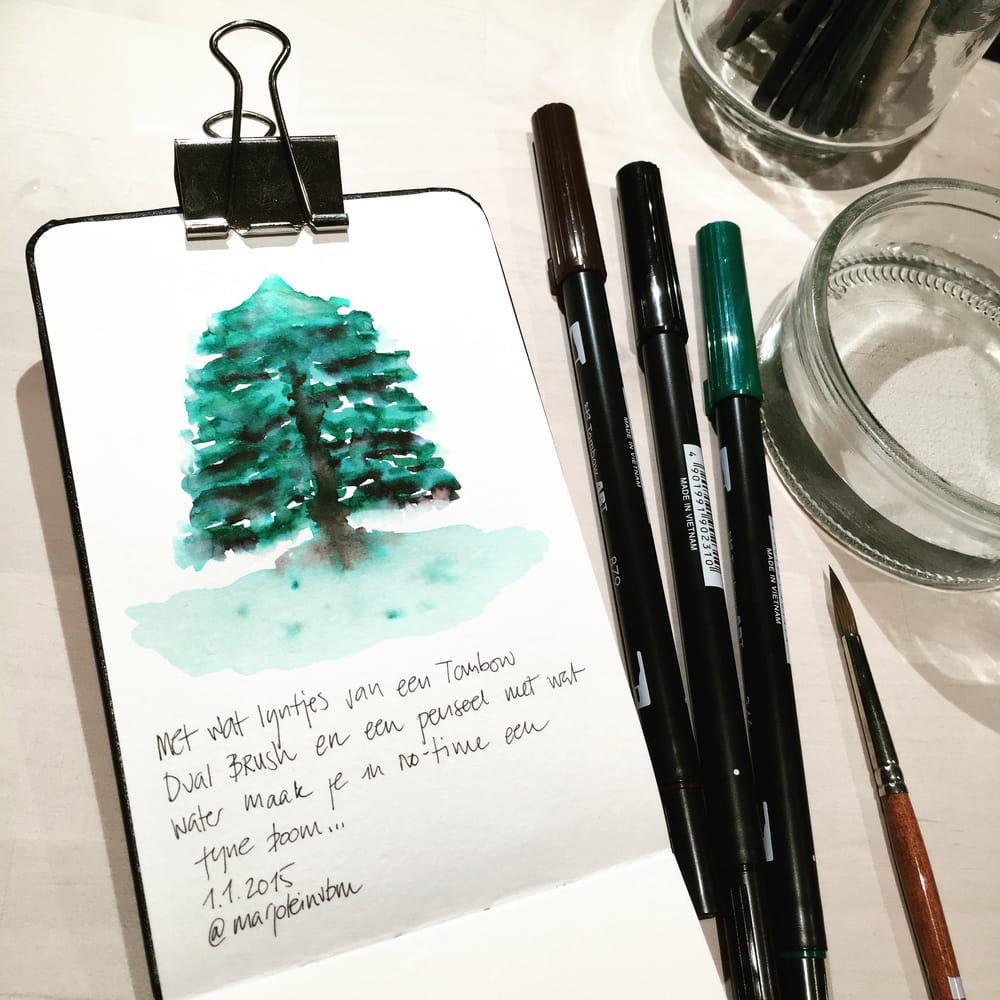 Met wat lyntjes van een Tombow
Dual Brush en een penseel met wat
water maak je in no-time een
fyne boom...
1.1.2015
@marjoleinvbm
MADE IN VIETNAM
Tombow ART
879
4901991902310
MADE IN VIETNAM
MADE IN VIETNAM